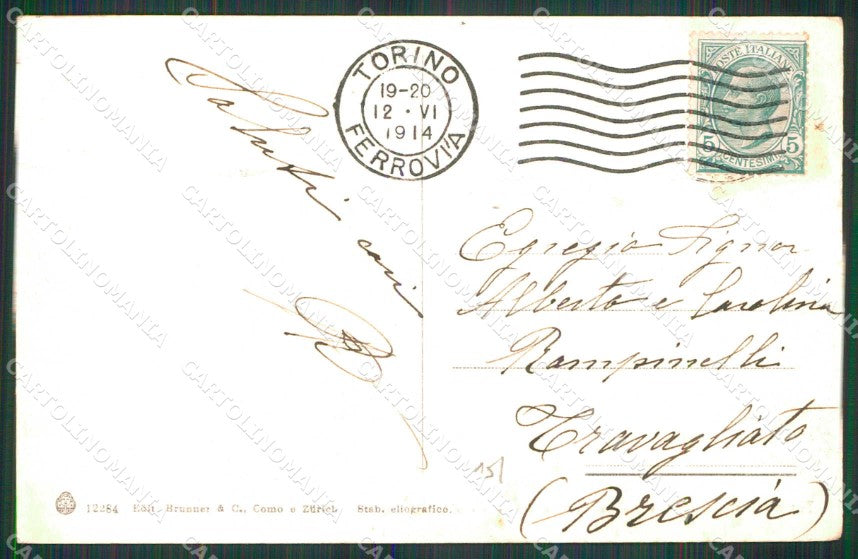 TORINO
19-20
12 · VI
1914
FERROVIA
POSTE ITALIANE
5 CENTESIMI 5
Saluti cari
Egregio Signor
Alberto e Carolina
Rampinelli
Travagliato
(Brescia)
15/
12284 Edit. Brunner & C., Como e Zürich. Stab. eliografico.
CARTOLINOMANIA